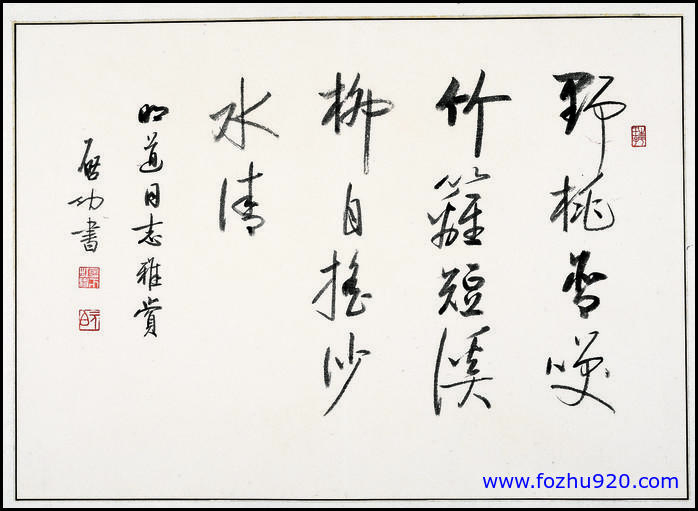 野桃含咲
竹籬短溪
柳自搖沙
水清
明道同志雅賞
启功書
www.fozhu920.com